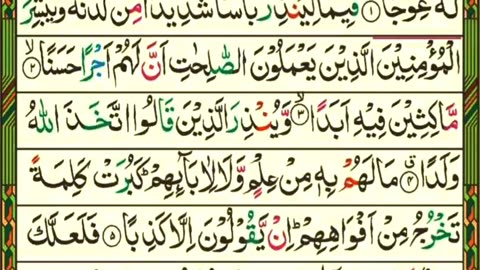 لَّهٗ عِوَجًا ۜ ﴿۱﴾ قَيِّمًا لِّيُنْذِرَ بَاْسًا شَدِيْدًا مِّنْ لَّدُنْهُ وَيُبَشِّرَ
الْمُؤْمِنِيْنَ الَّذِيْنَ يَعْمَلُوْنَ الصّٰلِحٰتِ اَنَّ لَهُمْ اَجْرًا حَسَنًا ﴿۲﴾
مَّاكِثِيْنَ فِيْهِ اَبَدًا ﴿۳﴾ وَّيُنْذِرَ الَّذِيْنَ قَالُوا اتَّخَذَ اللّٰهُ
وَلَدًا ﴿۴﴾ مَا لَهُمْ بِهٖ مِنْ عِلْمٍ وَّلَا لِاٰبَآئِهِمْ ؕ كَبُرَتْ كَلِمَةً
تَخْرُجُ مِنْ اَفْوَاهِهِمْ ؕ اِنْ يَّقُوْلُوْنَ اِلَّا كَذِبًا ﴿۵﴾ فَلَعَلَّكَ